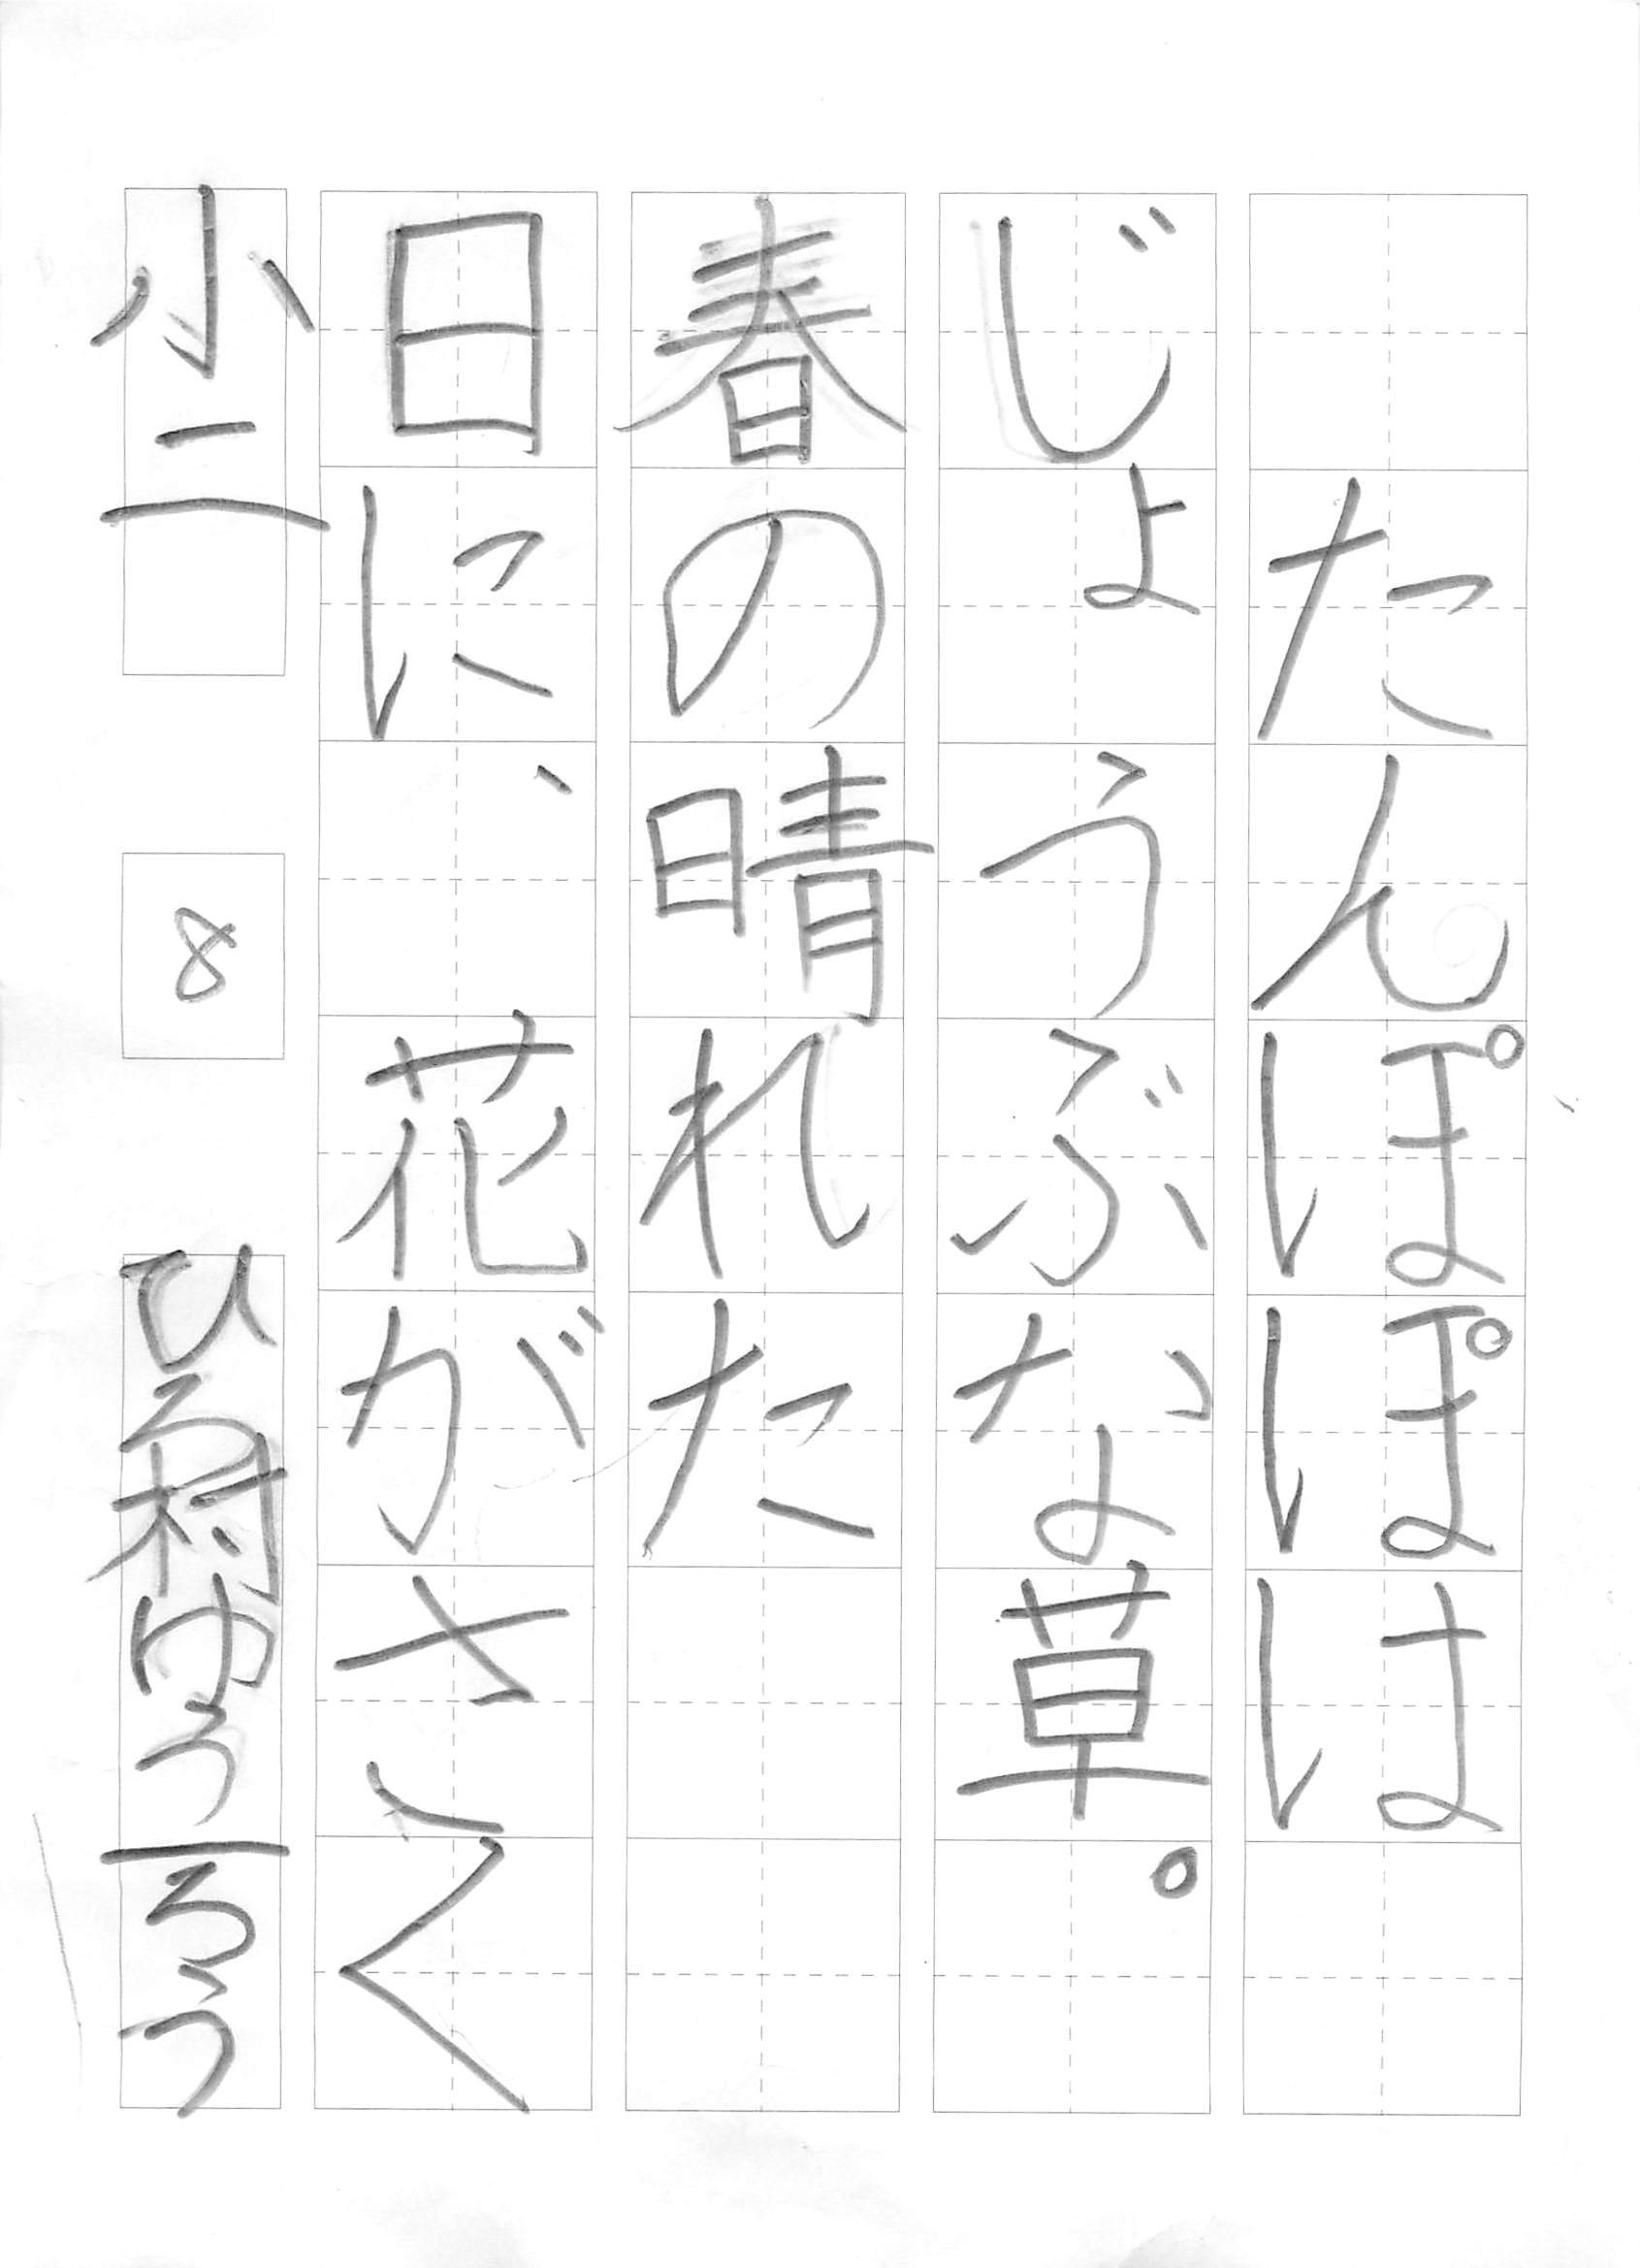 たんぽぽは
じょうぶな草。
春の晴れた
日に、花がさく
小二 8 ひろ村ゆう一ろう